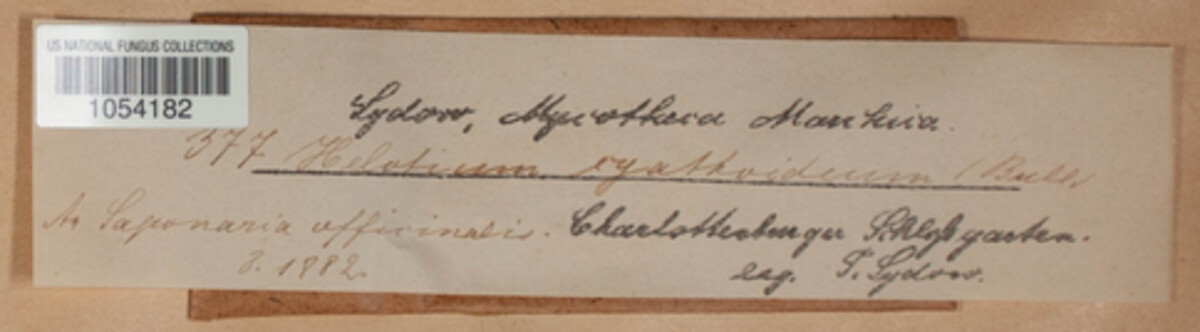 US NATIONAL FUNGUS COLLECTIONS
1054182
Sydow, Mycotheca Marchica.
377 Helotium cyathoideum (Bull.
An Saponaria officinalis. Charlottenburger Schloßgarten.
8. 1882. leg. P. Sydow.